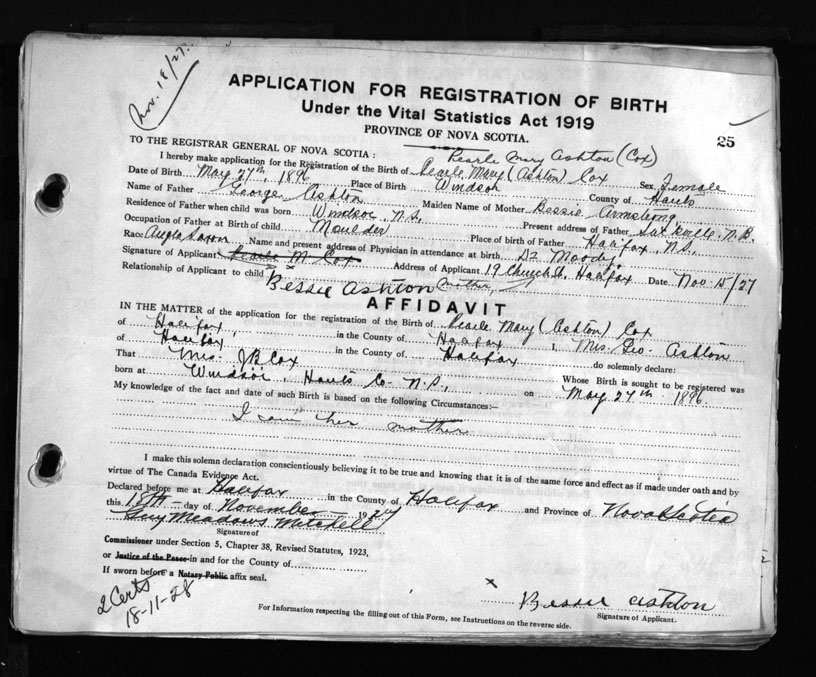 Nov. 18/27.
APPLICATION FOR REGISTRATION OF BIRTH
Under the Vital Statistics Act 1919
PROVINCE OF NOVA SCOTIA.
25
TO THE REGISTRAR GENERAL OF NOVA SCOTIA :
Pearle Mary Ashton (Cox)
I hereby make application for the Registration of the Birth of Pearle Mary (Ashton) Cox Sex Female
Date of Birth May 27th, 1896 Place of Birth Windsor County of Hants
Name of Father George Ashton Maiden Name of Mother Bessie Armstrong
Residence of Father when child was born Windsor, N.S. Present address of Father Sackville N.B.
Occupation of Father at Birth of child Moulder Place of birth of Father Halifax, N.S.
Race Anglo Saxon Name and present address of Physician in attendance at birth, Dr Moody,
Signature of Applicant Pearle M. Cox Address of Applicant 19 Church St. Halifax Date Nov 15/27
Relationship of Applicant to child Bessie Ashton mother,
AFFIDAVIT
IN THE MATTER of the application for the registration of the Birth of Pearle Mary (Ashton) Cox
of Halifax, in the County of Halifax I, Mrs. Geo. Ashton
of Halifax in the County of Halifax do solemnly declare:
That Mrs. J B Cox Whose Birth is sought to be registered was
born at Windsor, Hants Co. N.S., on May 27th 1896.
My knowledge of the fact and date of such Birth is based on the following Circumstances:—
I am her mother
I make this solemn declaration conscientiously believing it to be true and knowing that it is of the same force and effect as if made under oath and by
virtue of The Canada Evidence Act.
Declared before me at Halifax in the County of Halifax and Province of Nova Scotia
this 18th day of November 1927
Guy Meadows Mitchell
Signature of
Commissioner under Section 5, Chapter 38, Revised Statutes, 1923,
or Justice of the Peace in and for the County of
If sworn before a Notary Public affix seal.
2 Certs
18-11-28
x Bessie Ashton
Signature of Applicant.
For Information respecting the filling out of this Form, see Instructions on the reverse side.